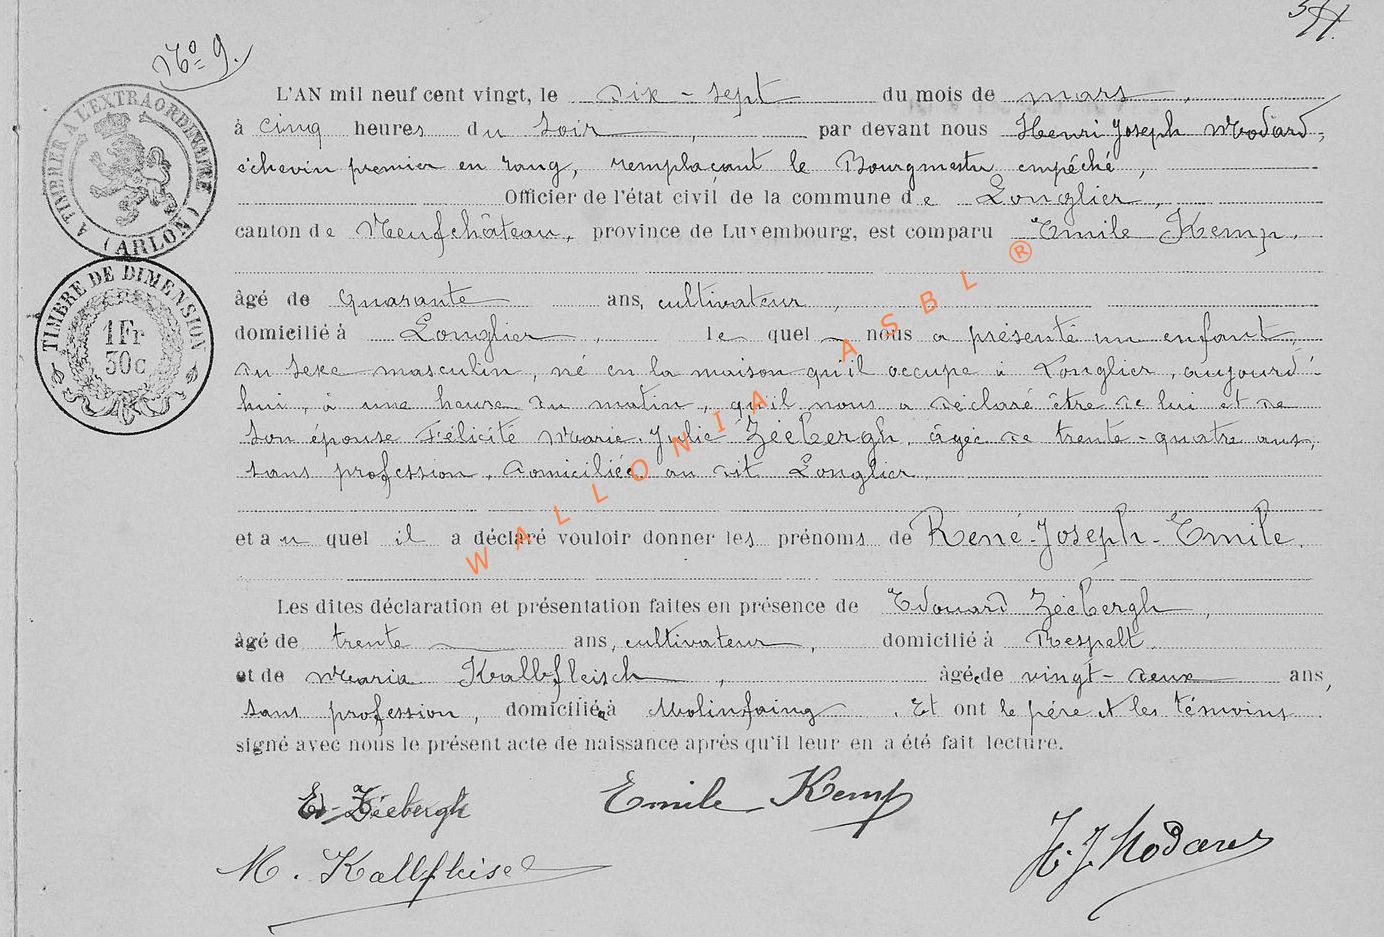 N° 9.
L'AN mil neuf cent vingt, le dix-sept du mois de mars,
à cinq heures du soir, par devant nous Henri Joseph Modard,
échevin premier en rang, remplaçant le Bourgmestre empêché,
Officier de l'état civil de la commune de Longlier,
canton de Neufchâteau, province de Luxembourg, est comparu Emile Kemp,
âgé de quarante ans, cultivateur,
domicilié à Longlier, le quel nous a présenté un enfant,
du sexe masculin, né en la maison qu'il occupe à Longlier, aujourd'
hui, à une heure du matin, qu'il nous a déclaré être de lui et de
son épouse Félicité Marie Julie Zéebergh, âgée de trente-quatre ans,
sans profession, domiciliée au dit Longlier,
et au quel il a déclaré vouloir donner les prénoms de René-Joseph-Emile.
Les dites déclaration et présentation faites en présence de Edouard Zéebergh,
âgé de trente ans, cultivateur, domicilié à Respelt
et de Maria Kalbfleisch, âgée de vingt-deux ans,
sans profession, domiciliée à Molinfaing. Et ont le père et les témoins
signé avec nous le présent acte de naissance après qu'il leur en a été fait lecture.
Ed. Zéebergh
Emile Kemp
M. Kalbfleisch
H. J. Modard
A TIMBRER A L'EXTRAORDINAIRE
(ARLON)
TIMBRE DE DIMENSION
1Fr
30c
WALLONIA ASBL ®